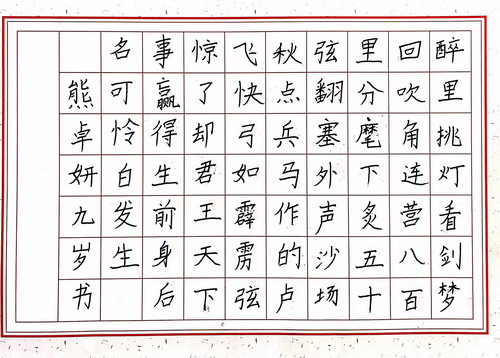 醉里挑灯看剑梦
回吹角连营八百
里分麾下炙五十
弦翻塞外声沙场
秋点兵马作的卢
飞快弓如霹雳弦
惊了却君王天下
事赢得生前身后
名可怜白发生
熊卓妍九岁书